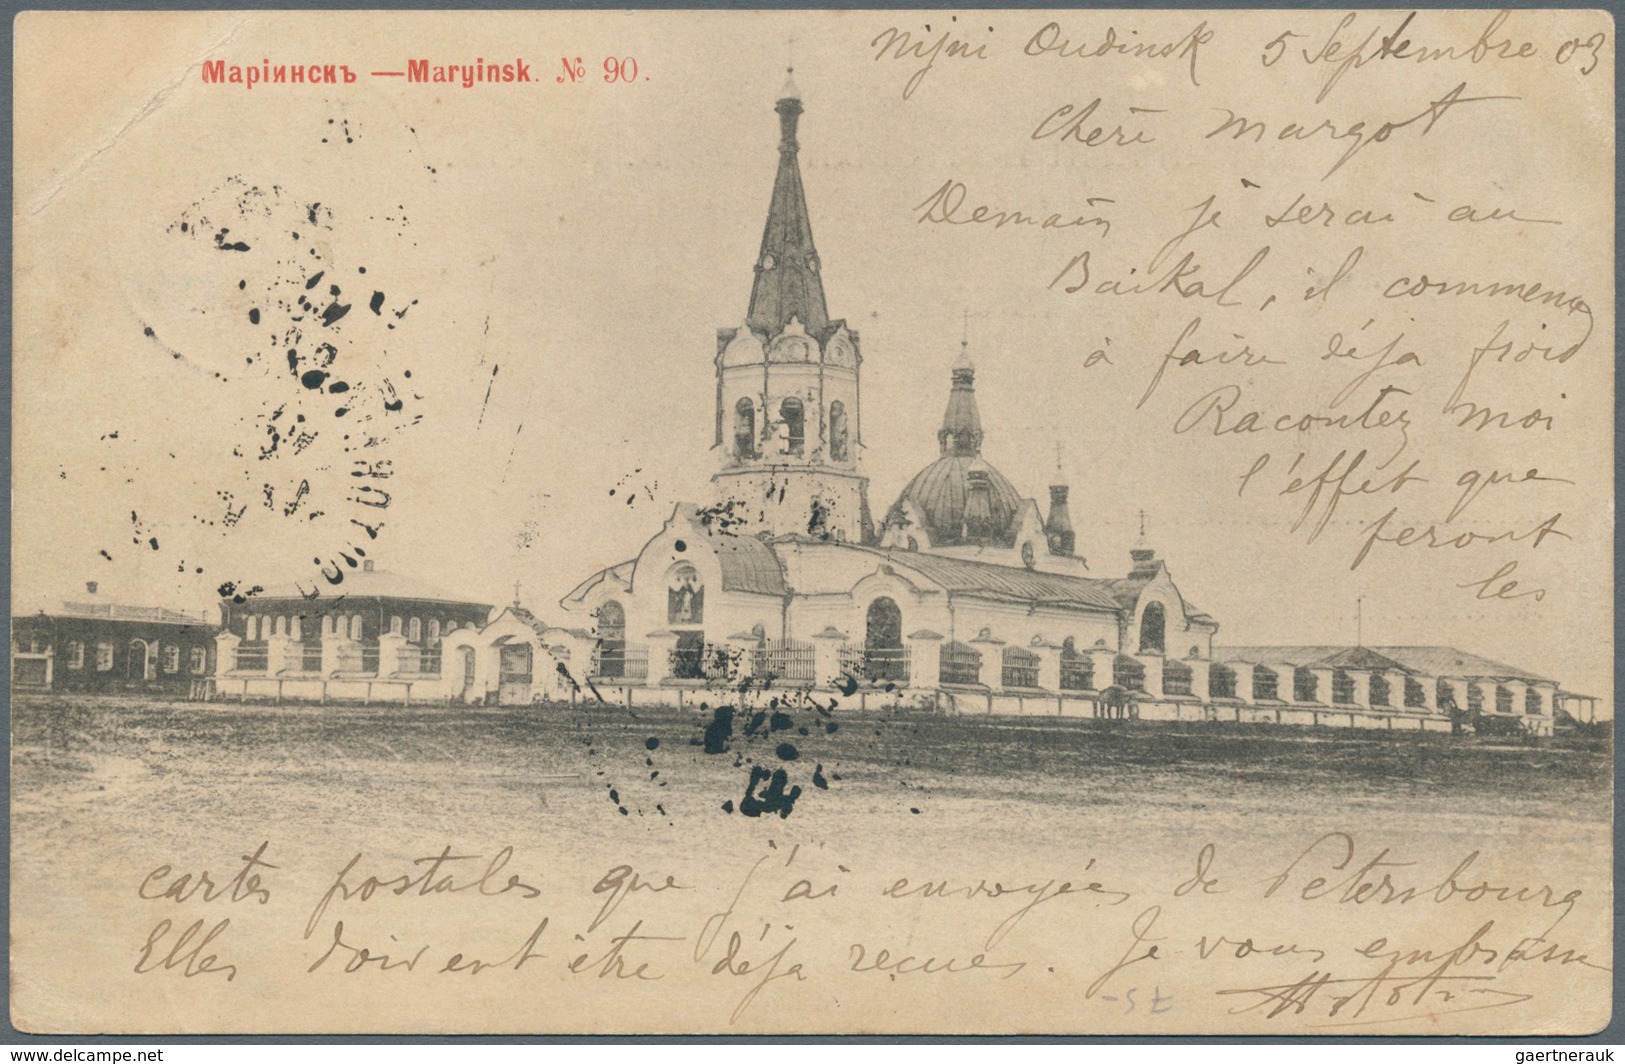 Маріинскъ —Maryinsk. № 90.
Nijni Oudinsk 5 Septembre 03
Cheri Margot
Demain je serai au
Baikal, il commence
à faire déja froid
Racontez moi
l'effet que
feront
les
cartes postales que j'ai envoyées de Petersbourg
Elles doivent être déja reçues. Je vous embrasse
delcampe.net
gaertnerauk